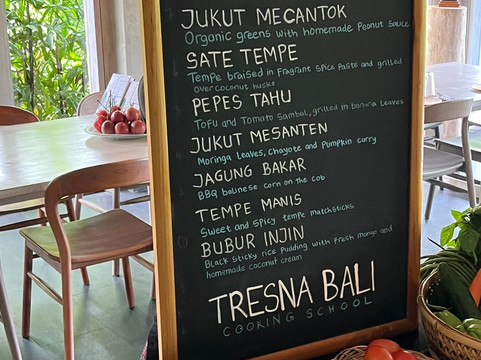 JUKUT MECANTOK
Organic greens with homemade Peanut Sauce
SATE TEMPE
Tempe braised in Fragrant Spice Paste and grilled
over coconut husks
PEPES TAHU
Tofu and Tomato Sambal, grilled in banana leaves
JUKUT MESANTEN
Moringa leaves, Chayote and Pumpkin curry
JAGUNG BAKAR
BBQ balinese corn on the cob
TEMPE MANIS
Sweet and Spicy tempe matchsticks
BUBUR INJIN
Black sticky rice Pudding with fresh mango and
homemade coconut cream
TRESNA BALI
COOKING SCHOOL